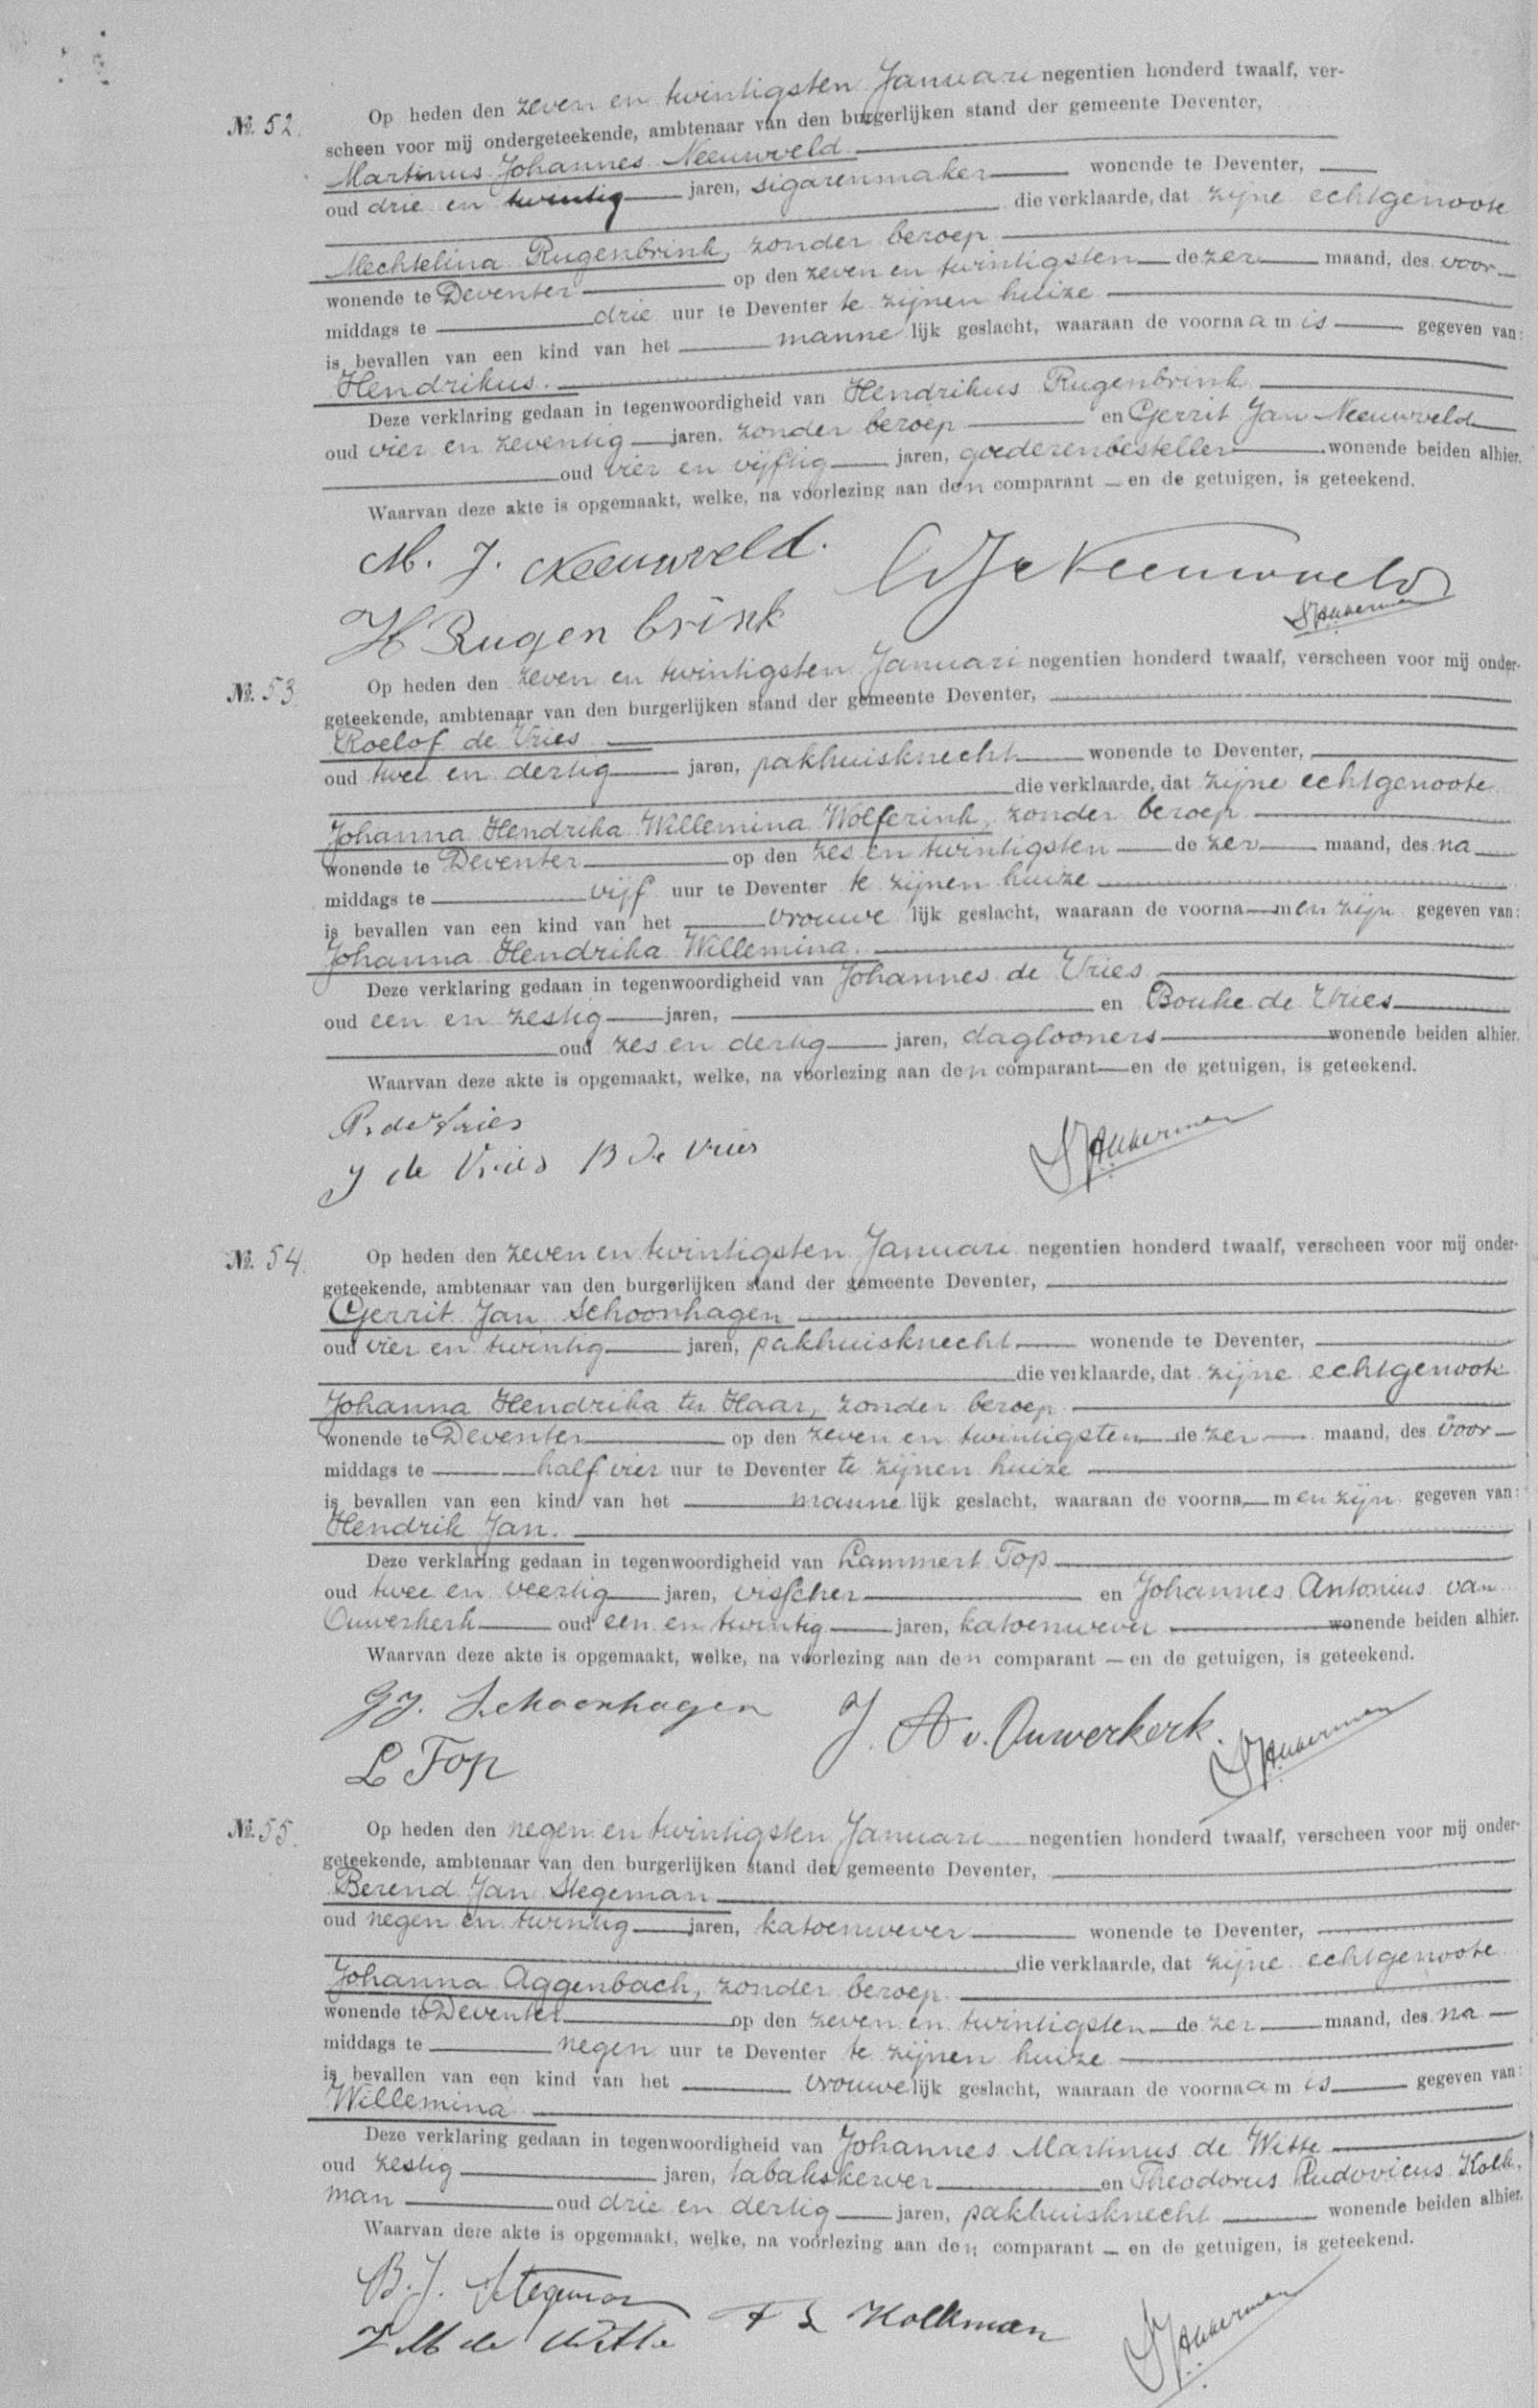 №. 52. Op heden den zeven en twintigsten Januari negentien honderd twaalf, ver-
scheen voor mij ondergeteekende, ambtenaar van den burgerlijken stand der gemeente Deventer,
Martinus Johannes Neeuwveld
oud drie en twintig jaren, sigarenmaker wonende te Deventer,
die verklaarde, dat zijne echtgenoote
Mechtelina Rugenbrink, zonder beroep
wonende te Deventer op den zeven en twintigsten dezer maand, des voor
middags te drie uur te Deventer te zijnen huize
is bevallen van een kind van het mannelijk geslacht, waaraan de voornaam is gegeven van:
Hendrikus.
Deze verklaring gedaan in tegenwoordigheid van Hendrikus Rugenbrink
oud vier en zeventig jaren, zonder beroep en Gerrit Jan Neeuwveld
oud vier en vijftig jaren, goederenbesteller wonende beiden alhier.
Waarvan deze akte is opgemaakt, welke, na voorlezing aan den comparant en de getuigen, is geteekend.
M. J. Neeuwveld. Neeuwveld
H Rugenbrink
№. 53. Op heden den zeven en twintigsten Januari negentien honderd twaalf, verscheen voor mij onder-
geteekende, ambtenaar van den burgerlijken stand der gemeente Deventer,
Roelof de Vries
oud twee en dertig jaren, pakhuisknecht wonende te Deventer,
die verklaarde, dat zijne echtgenoote
Johanna Hendrika Willemina Wolferink, zonder beroep
wonende te Deventer op den zes en twintigsten dezer maand, des na
middags te vijf uur te Deventer te zijnen huize
is bevallen van een kind van het vrouwelijk geslacht, waaraan de voornamen zijn gegeven van:
Johanna Hendrika Willemina.
Deze verklaring gedaan in tegenwoordigheid van Johannes de Vries
oud een en zestig jaren, en Bouke de Vries
oud zes en dertig jaren, daglooners wonende beiden alhier.
Waarvan deze akte is opgemaakt, welke, na voorlezing aan den comparant en de getuigen, is geteekend.
R. de Vries
J de Vries B de Vries
№. 54. Op heden den zeven en twintigsten Januari negentien honderd twaalf, verscheen voor mij onder-
geteekende, ambtenaar van den burgerlijken stand der gemeente Deventer,
Gerrit Jan Schoonhagen
oud vier en twintig jaren, pakhuisknecht wonende te Deventer,
die verklaarde, dat zijne echtgenoote
Johanna Hendrika ter Haar, zonder beroep
wonende te Deventer op den zeven en twintigsten dezer maand, des voor
middags te half vier uur te Deventer te zijnen huize
is bevallen van een kind van het mannelijk geslacht, waaraan de voornamen zijn gegeven van:
Hendrik Jan.
Deze verklaring gedaan in tegenwoordigheid van Lammert Top
oud twee en veertig jaren, visscher en Johannes Antonius van
Ouwerkerk oud een en twintig jaren, katoenwever wonende beiden alhier.
Waarvan deze akte is opgemaakt, welke, na voorlezing aan den comparant en de getuigen, is geteekend.
GJ. Schoonhagen J. A v. Ouwerkerk.
L Top
№. 55. Op heden den negen en twintigsten Januari negentien honderd twaalf, verscheen voor mij onder-
geteekende, ambtenaar van den burgerlijken stand der gemeente Deventer,
Berend Jan Stegeman
oud negen en twintig jaren, katoenwever wonende te Deventer,
die verklaarde, dat zijne echtgenoote
Johanna Aggenbach, zonder beroep
wonende te Deventer op den zeven en twintigsten dezer maand, des na
middags te negen uur te Deventer te zijnen huize
is bevallen van een kind van het vrouwelijk geslacht, waaraan de voornaam is gegeven van:
Willemina
Deze verklaring gedaan in tegenwoordigheid van Johannes Martinus de Witte
oud zestig jaren, tabakskerver en Theodorus Ludovicus Kolk-
man oud drie en dertig jaren, pakhuisknecht wonende beiden alhier.
Waarvan deze akte is opgemaakt, welke, na voorlezing aan den comparant en de getuigen, is geteekend.
B. J. Stegeman
J. M de Witte T L Kolkman